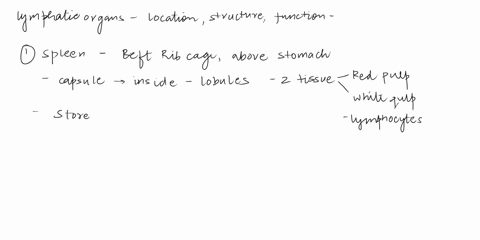 lymphatic organs - location, structure, function -
① Spleen - Beft Rib cage, above stomach
- capsule → inside - lobules - 2 tissue - Red pulp
white pulp
- Store - lymphocytes